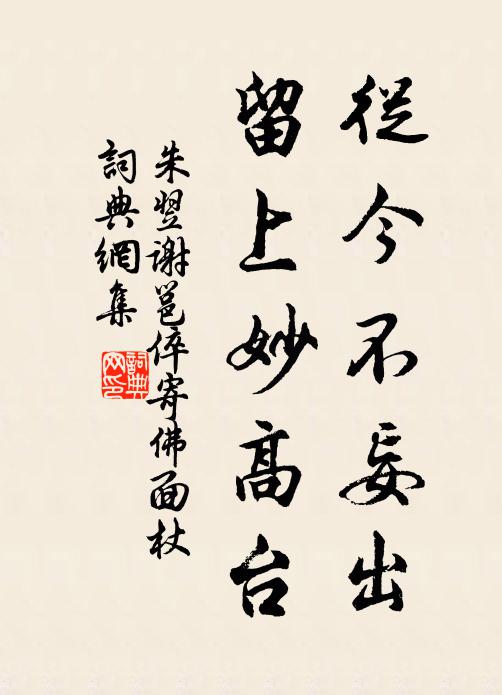 從今不妄出
留上妙高台
朱翌謝邕倅寄佛面杖
詞典網集
詞典
网印